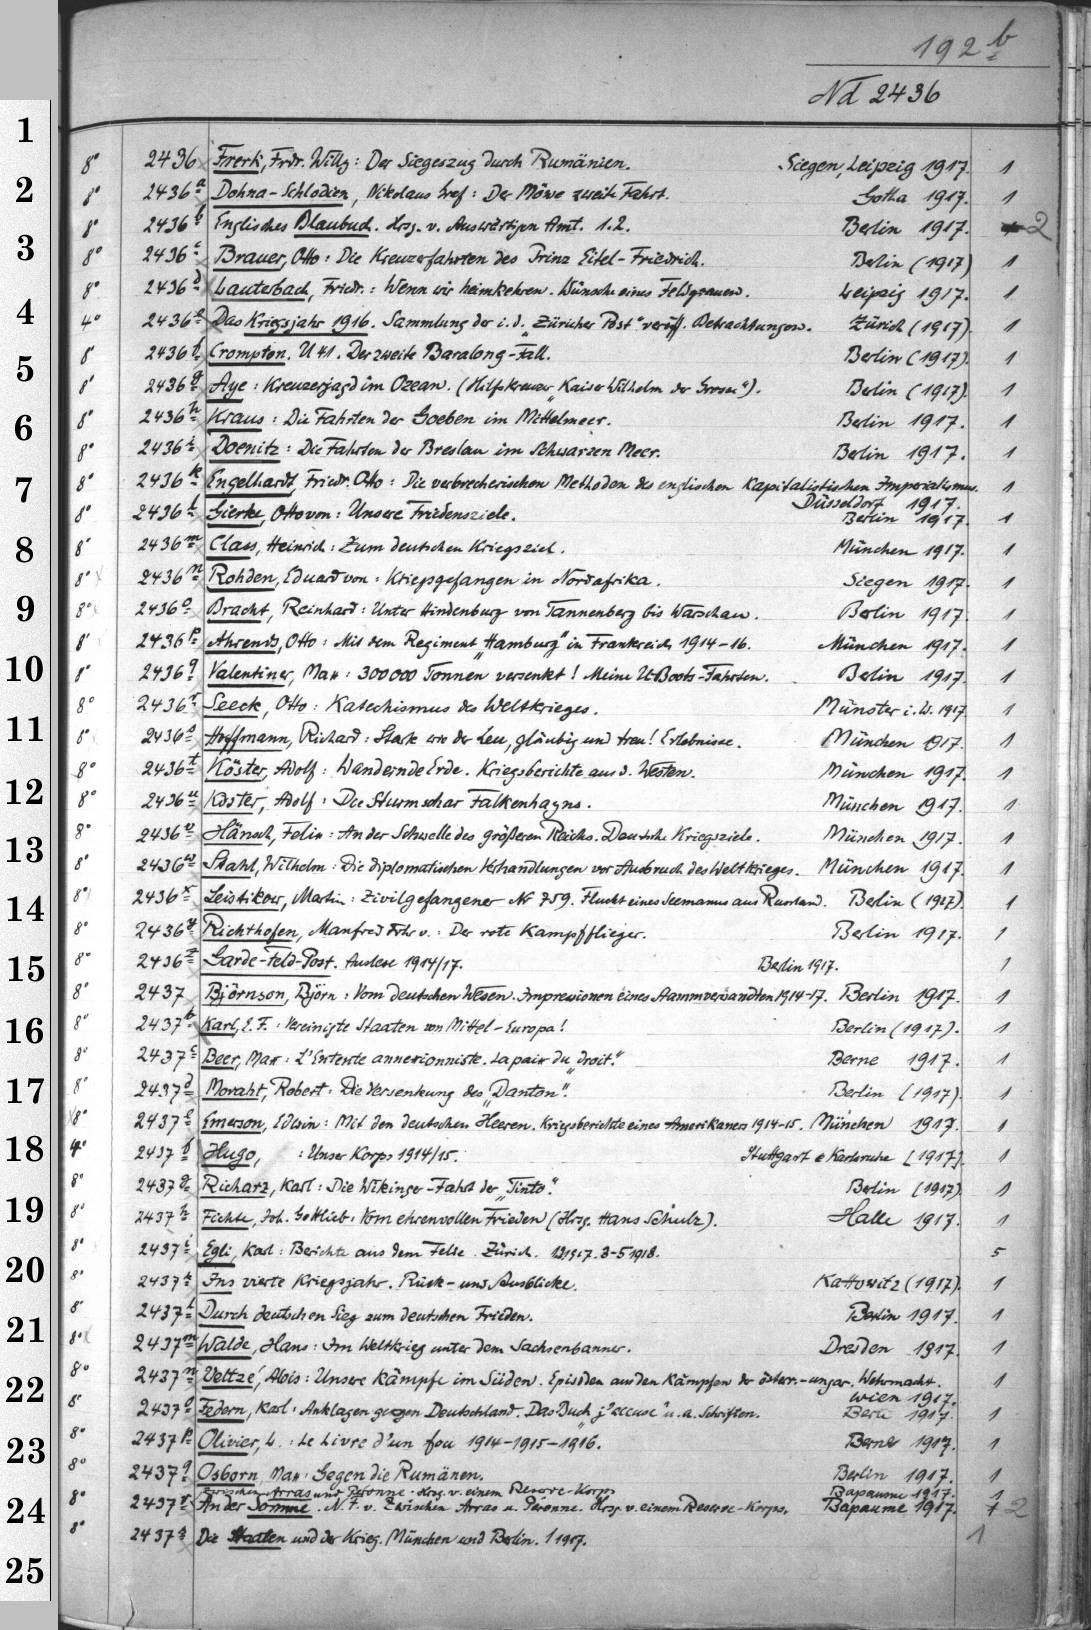 192 b
Nd 2436
1
2
3
4
5
6
7
8
9
10
11
12
13
14
15
16
17
18
19
20
21
22
23
24
25
8° 2436 Frerk, Frdr. Willy: Der Siegeszug durch Rumänien. Siegen, Leipzig 1917. 1
8° 2436 a Dohna-Schlodien, Nikolaus Graf: Der Möwe zweite Fahrt. Gotha 1917. 1
8° 2436 b Englisches Blaubuch. Hrsg. v. Auswärtigen Amt. 1.2. Berlin 1917. 2
8° 2436 c Brauer, Otto: Die Kreuzerfahrten des Prinz Eitel-Friedrich. Berlin (1917) 1
8° 2436 d Lauterbach, Friedr.: Wenn wir heimkehren. Wünsche eines Feldgrauen. Leipzig 1917. 1
4° 2436 e Das Kriegsjahr 1916. Sammlung der i. d. „Züricher Post" veröff. Betrachtungen. Zürich (1917). 1
8° 2436 f Crompton. U 41. Der zweite Baralong-Fall. Berlin (1917). 1
8° 2436 g Aye: Kreuzerjagd im Ozean. (Hilfskreuzer „Kaiser Wilhelm der Grosse"). Berlin (1917). 1
8° 2436 h Kraus: Die Fahrten der Goeben im Mittelmeer. Berlin 1917. 1
8° 2436 i Doenitz: Die Fahrten der Breslau im Schwarzen Meer. Berlin 1917. 1
8° 2436 k Engelhardt, Friedr. Otto: Die verbrecherischen Methoden des englischen Kapitalistischen Imperialismus. 1
Düsseldorf 1917.
8° 2436 l Gierke, Otto von: Unsere Friedensziele. Berlin 1917. 1
8° 2436 m Class, Heinrich: Zum deutschen Kriegsziel. München 1917. 1
8° 2436 n Rohden, Eduard von: Kriegsgefangen in Nordafrika. Siegen 1917. 1
8° 2436 o Bracht, Reinhard: Unter Hindenburg von Tannenberg bis Warschau. Berlin 1917. 1
8° 2436 p Ahrends, Otto: Mit dem Regiment „Hamburg" in Frankreich 1914-16. München 1917. 1
8° 2436 q Valentiner, Max: 300000 Tonnen versenkt! Meine U-Boots-Fahrten. Berlin 1917. 1
8° 2436 r Seeck, Otto: Katechismus des Weltkrieges. Münster i. W. 1917 1
8° 2436 s Hoffmann, Richard: Stark wie der Leu, gläubig und treu! Erlebnisse. München 1917. 1
8° 2436 t Köster, Adolf: Wandernde Erde. Kriegsberichte aus d. Westen. München 1917. 1
8° 2436 u Köster, Adolf: Die Sturmschar Falkenhayns. München 1917. 1
8° 2436 v Hänsch, Felix: An der Schwelle des größeren Reichs. Deutsche Kriegsziele. München 1917. 1
8° 2436 w Stahl, Wilhelm: Die diplomatischen Verhandlungen vor Ausbruch des Weltkrieges. München 1917. 1
8° 2436 x Leistikow, Martin: Zivilgefangener Nr 759. Flucht eines Seemanns aus Russland. Berlin (1917). 1
8° 2436 y Richthofen, Manfred Frhr v.: Der rote Kampfflieger. Berlin 1917. 1
8° 2436 z Garde-Feld-Post. Auslese 1914/17. Berlin 1917. 1
8° 2437 Björnson, Björn: Vom deutschen Wesen. Impressionen eines Stammverwandten 1914-17. Berlin 1917. 1
8° 2437 b Karl, E. F.: Vereinigte Staaten von Mittel-Europa! Berlin (1917). 1
8° 2437 c Beer, Max: L'Entente annexionniste. La paix du „droit." Berne 1917. 1
8° 2437 d Moraht, Robert: Die Versenkung des „Danton". Berlin (1917). 1
8° 2437 e Emerson, Edwin: Mit den deutschen Heeren. Kriegsberichte eines Amerikaners 1914-15. München 1917. 1
4° 2437 f Hugo, : Unser Korps 1914/15. Stuttgart & Karlsruhe [1917]. 1
8° 2437 g Richarz, Karl: Die Wikinger-Fahrt der „Tinto". Berlin (1917) 1
8° 2437 h Fichte, Joh. Gottlieb: Vom ehrenvollen Frieden (Hrsg. Hans Schulz). Halle 1917. 1
8° 2437 i Egli, Karl: Berichte aus dem Felde. Zürich. 1917. 3-5 1918. 5
8° 2437 k Ins vierte Kriegsjahr. Rück- und Ausblicke. Kattowitz (1917). 1
8° 2437 l Durch deutschen Sieg zum deutschen Frieden. Berlin 1917. 1
8° 2437 m Walde, Hans: Im Weltkrieg unter dem Sachsenbanner. Dresden 1917. 1
8° 2437 n Veltzé, Alois: Unsere Kämpfe im Süden. Episoden aus den Kämpfen der österr.-ungar. Wehrmacht. 1
Wien 1917.
8° 2437 o Federn, Karl: Anklagen gegen Deutschland. Das Buch „j'accuse" u. a. Schriften. 1917. 1
8° 2437 p Olivier, L.: Le Livre d'un fou 1914-1915-1916. Berne 1917. 1
8° 2437 q Osborn, Max: Gegen die Rumänen. Berlin 1917. 1
zwischen Arras und Péronne. Hrsg. v. einem Reserve-Korps Bapaume 1917. 1
8° 2437 r An der Somme. N. F. v. Zwischen Arras u. Péronne. Hrsg. v. einem Reserve-Korps. Bapaume 1917. 2
8° 2437 s Die Staaten und der Krieg. München und Berlin. 1 1917. 1